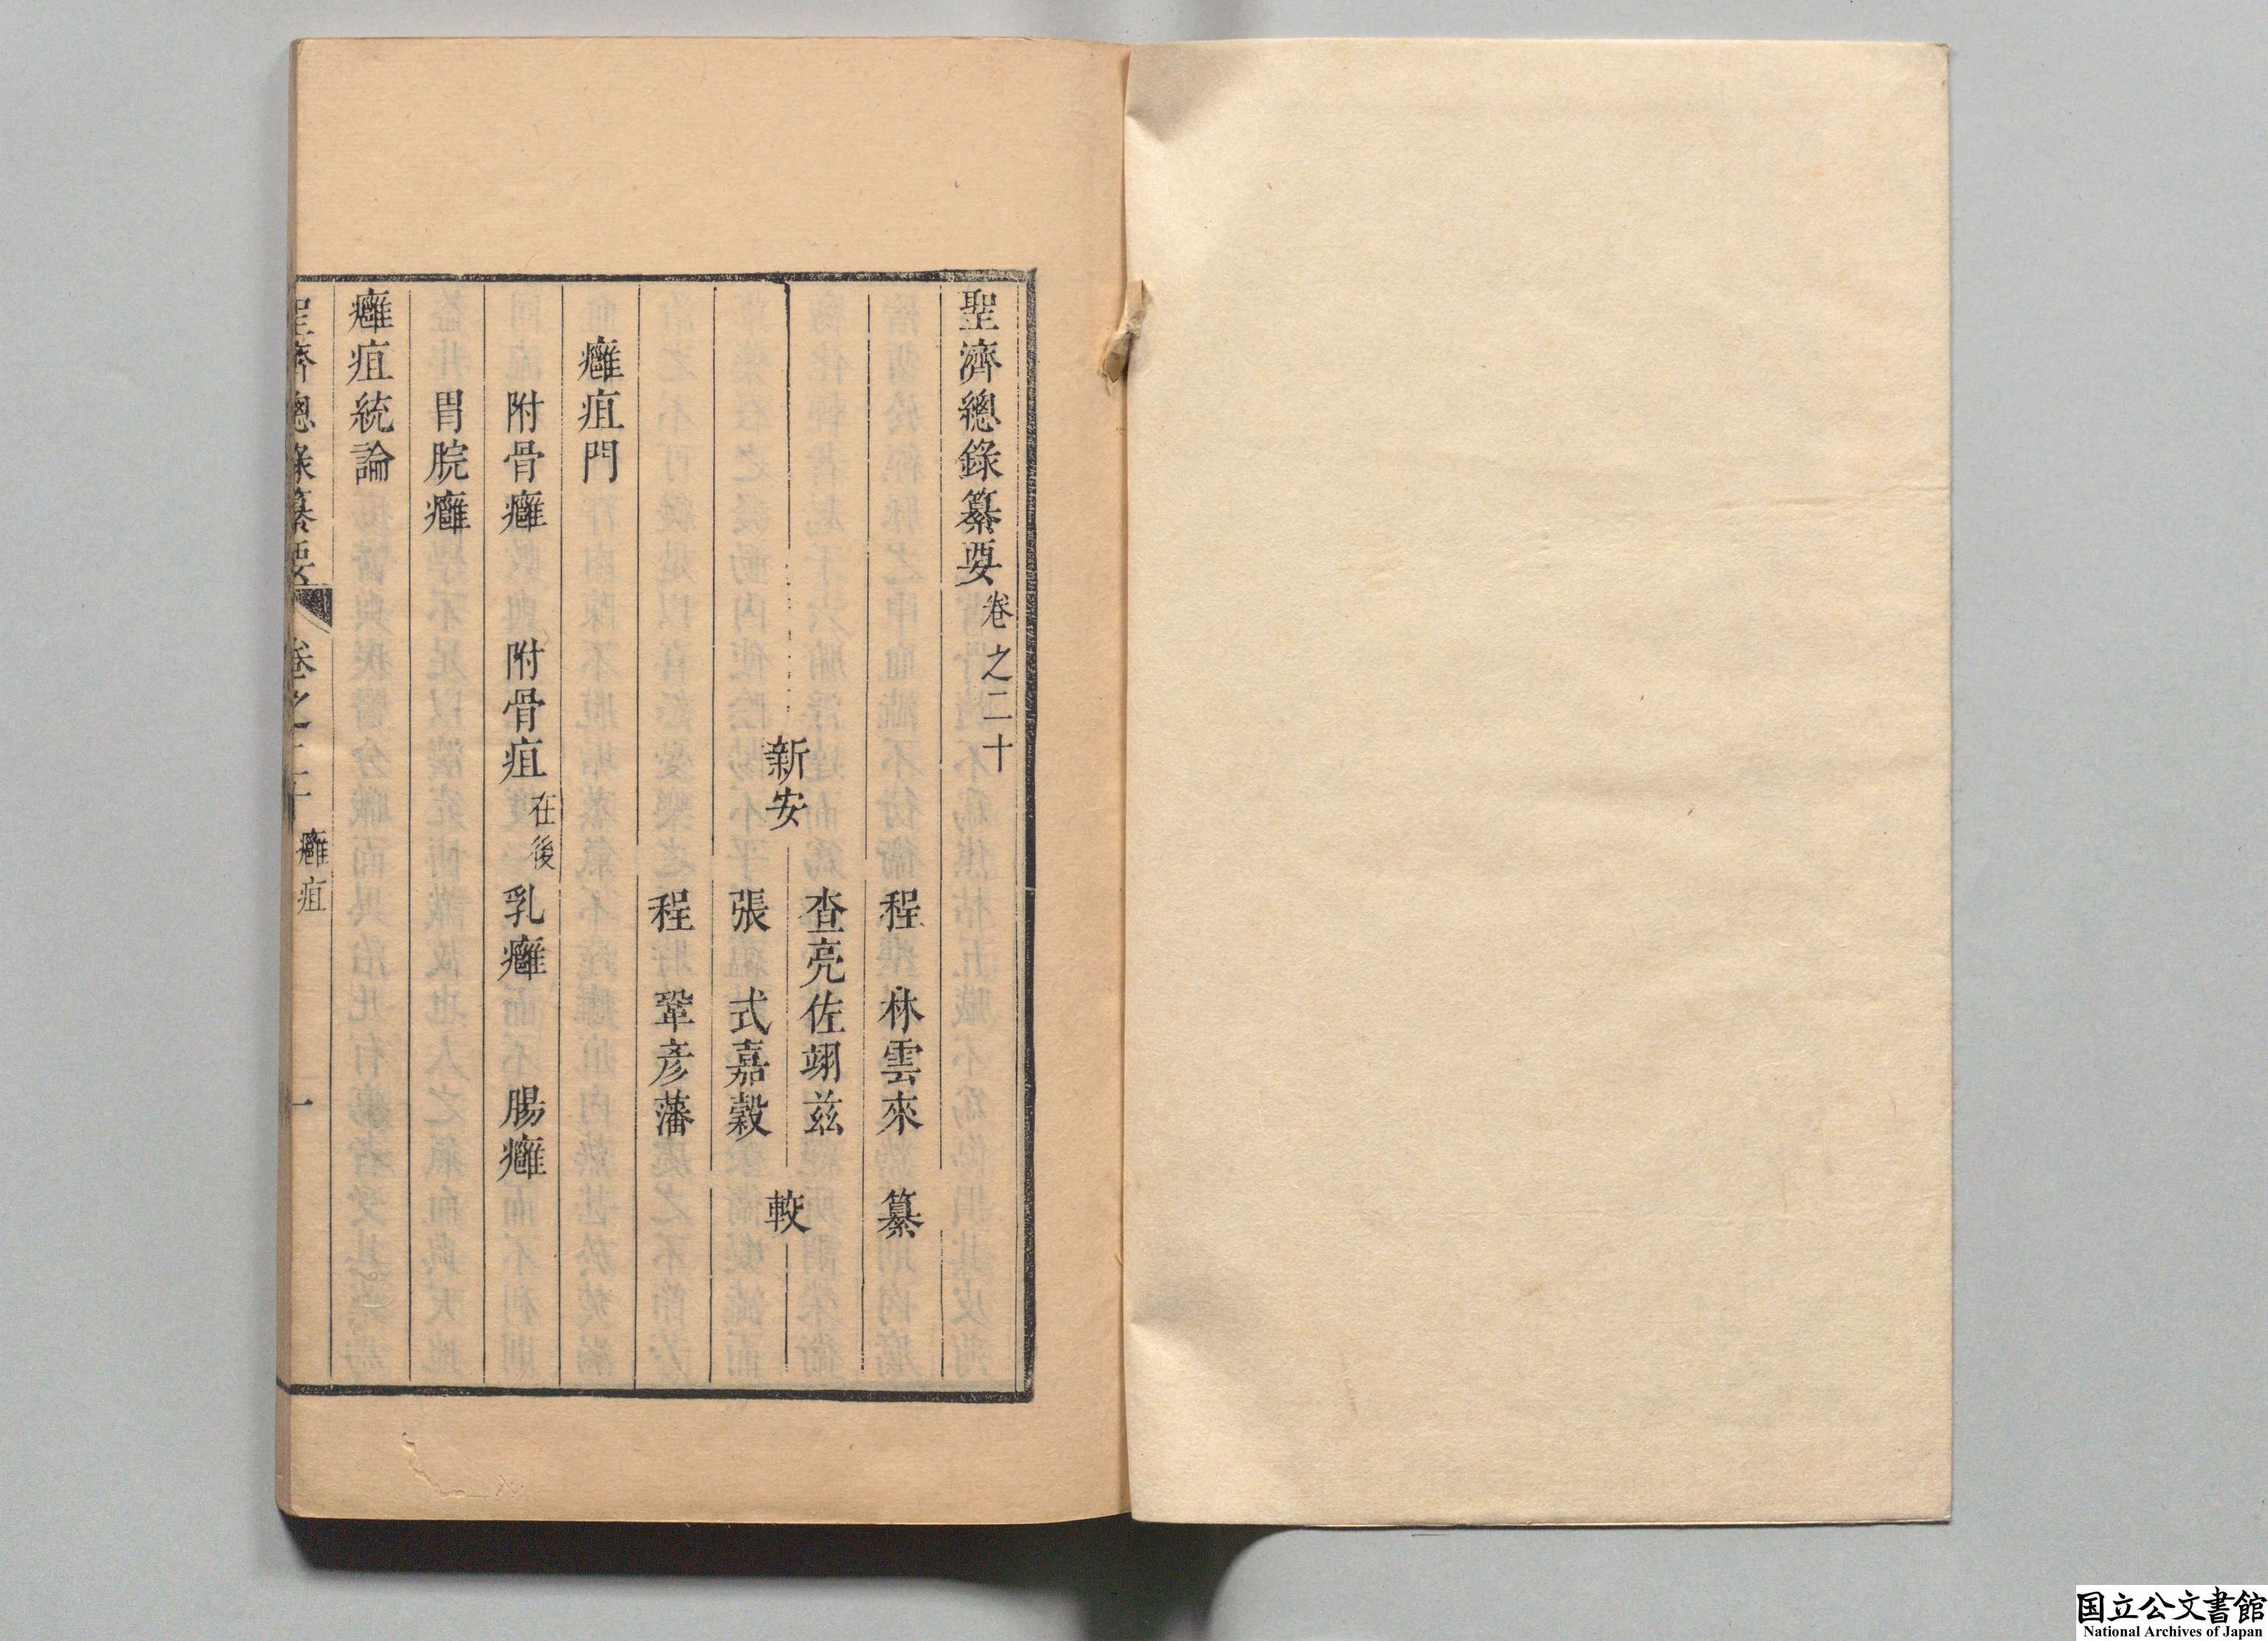 聖濟總錄纂要卷之二十
程林雲來纂
查亮佐翊兹
新安 較
張式嘉穀
程鞏彥藩
癰疽門
附骨癰 附骨疽在後 乳癰 腸癰
胃脘癰
癰疽統論
聖濟總錄纂要 卷之二十 癰疽 一
国立公文書館
National Archives of Japan